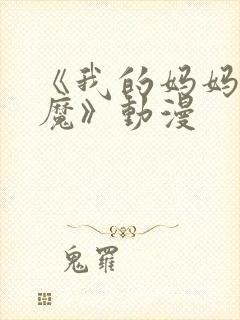 《我的妈妈
魔》動漫
鬼羅